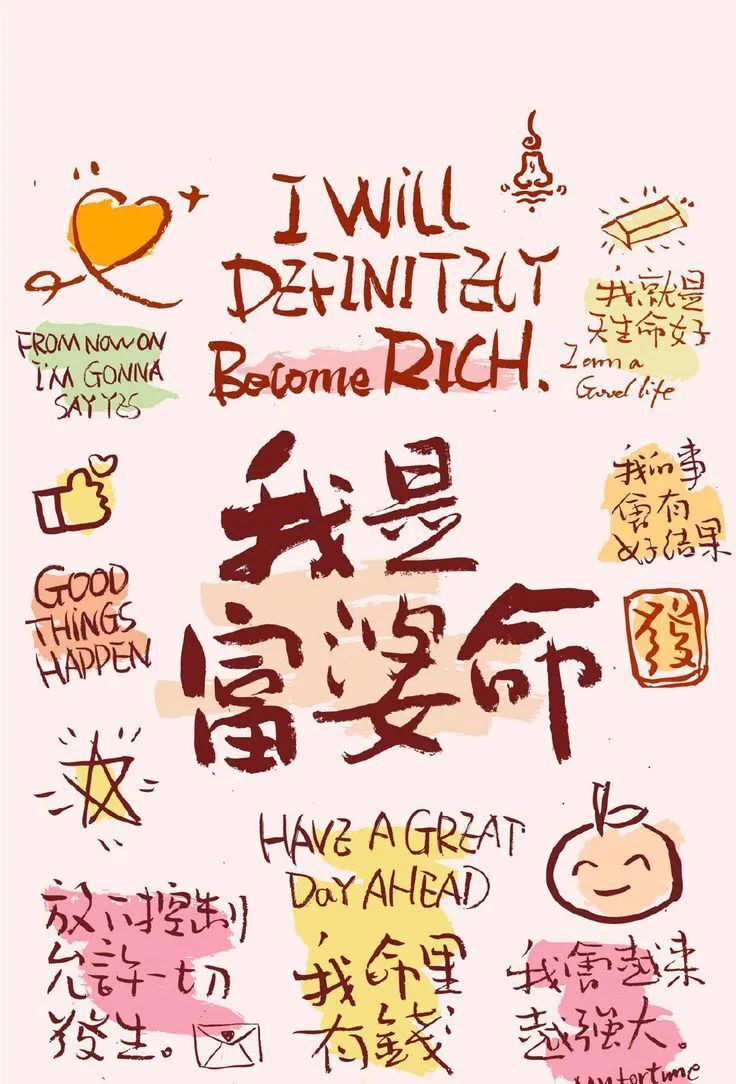 I WiLL
DEFINITELY
Become RICH.
我就是
天生命好
I am a
Good life
FROM NOW ON
I'M GONNA
SAY YES
我是
富婆命
我的事
會有
好結果
GOOD
THiNGS
HAPPEN
發
HAVE A GREAT
DaY AHEAD
放下控制
允許一切
發生。
我命里
有錢
我會越來
越強大。
my fortune